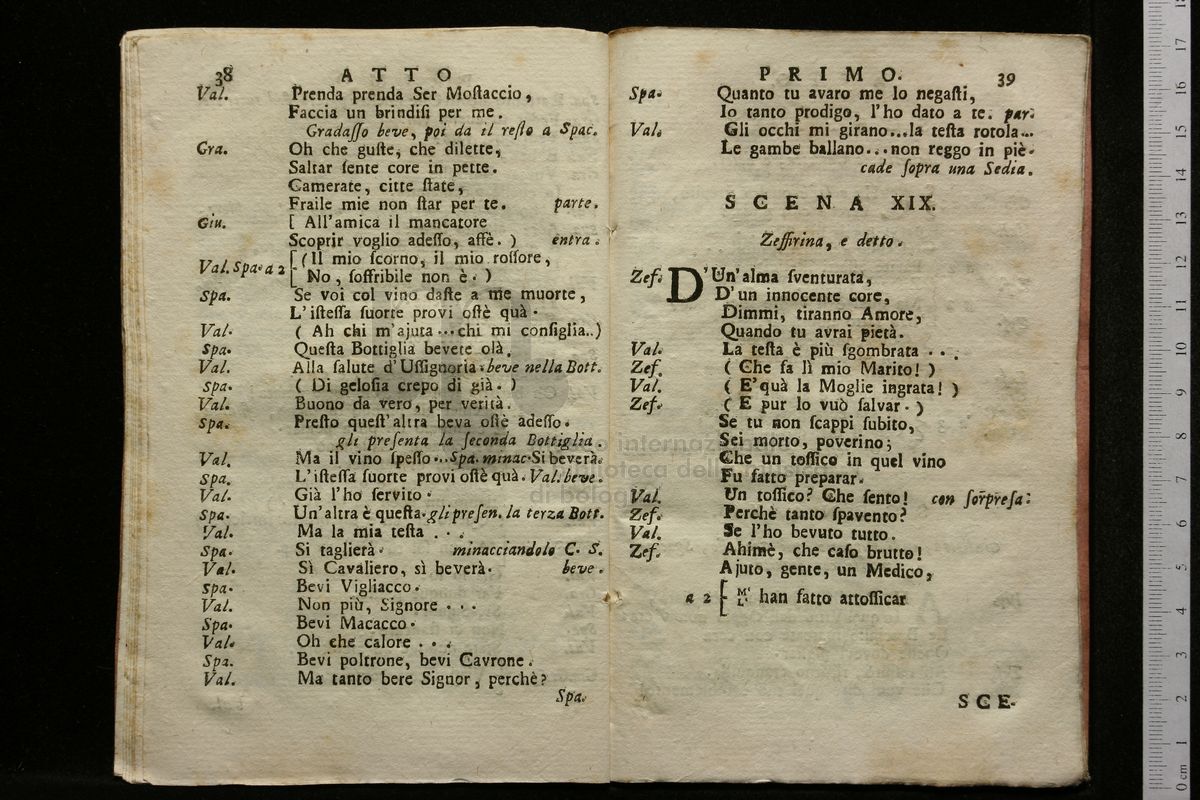 38 ATTO
Val. Prenda prenda Ser Moſtaccio,
Faccia un brindiſi per me.
Gradaſſo beve, poi da il reſto a Spac.
Gra. Oh che guſte, che dilette,
Saltar ſente core in pette.
Camerate, citte ſtate,
Fraile mie non ſtar per te. parte.
Giu. [ All'amica il mancatore
Scoprir voglio adeſſo, affè. ) entra.
Val. Spa. a 2 [ (Il mio ſcorno, il mio roſſore,
No, ſoffribile non è. )
Spa. Se voi col vino daſte a me muorte,
L'iſteſſa ſuorte provi oſtè quà.
Val. ( Ah chi m'ajuta...chi mi conſiglia..)
Spa. Queſta Bottiglia bevete olà.
Val. Alla ſalute d'Uſſignoria. beve nella Bott.
Spa. ( Di geloſia crepo di già. )
Val. Buono da vero, per verità.
Spa. Preſto queſt'altra beva oſtè adeſſo.
gli preſenta la ſeconda Bottiglia.
Val. Ma il vino ſpeſſo... Spa. minac. Si beverà.
Spa. L'iſteſſa ſuorte provi oſtè quà. Val. beve.
Val. Già l'ho ſervito.
Spa. Un'altra è queſta. gli preſen. la terza Bott.
Val. Ma la mia teſta . . .
Spa. Si taglierà. minacciandolo C. S.
Val. Sì Cavaliero, sì beverà. beve.
Spa. Bevi Vigliacco.
Val. Non più, Signore . . .
Spa. Bevi Macacco.
Val. Oh che calore . . .
Spa. Bevi poltrone, bevi Cavrone.
Val. Ma tanto bere Signor, perchè?
Spa.
PRIMO. 39
Spa. Quanto tu avaro me lo negaſti,
Io tanto prodigo, l'ho dato a te. par.
Val. Gli occhi mi girano...la teſta rotola...
Le gambe ballano...non reggo in piè.
cade ſopra una Sedia.
SCENA XIX.
Zeffirina, e detto.
Zef. D'Un'alma ſventurata,
D'un innocente core,
Dimmi, tiranno Amore,
Quando tu avrai pietà.
Val. La teſta è più ſgombrata . . .
Zef. ( Che fa lì mio Marito! )
Val. ( E' quà la Moglie ingrata! )
Zef. ( E pur lo vuò ſalvar. )
Se tu non ſcappi ſubito,
Sei morto, poverino;
Che un toſſico in quel vino
Fu fatto preparar.
Val. Un toſſico? Che ſento! con ſorpreſa.
Zef. Perchè tanto ſpavento?
Val. Se l'ho bevuto tutto.
Zef. Ahimè, che caſo brutto!
Ajuto, gente, un Medico,
a 2 [ M' L' han fatto attoſſicar
SCE-